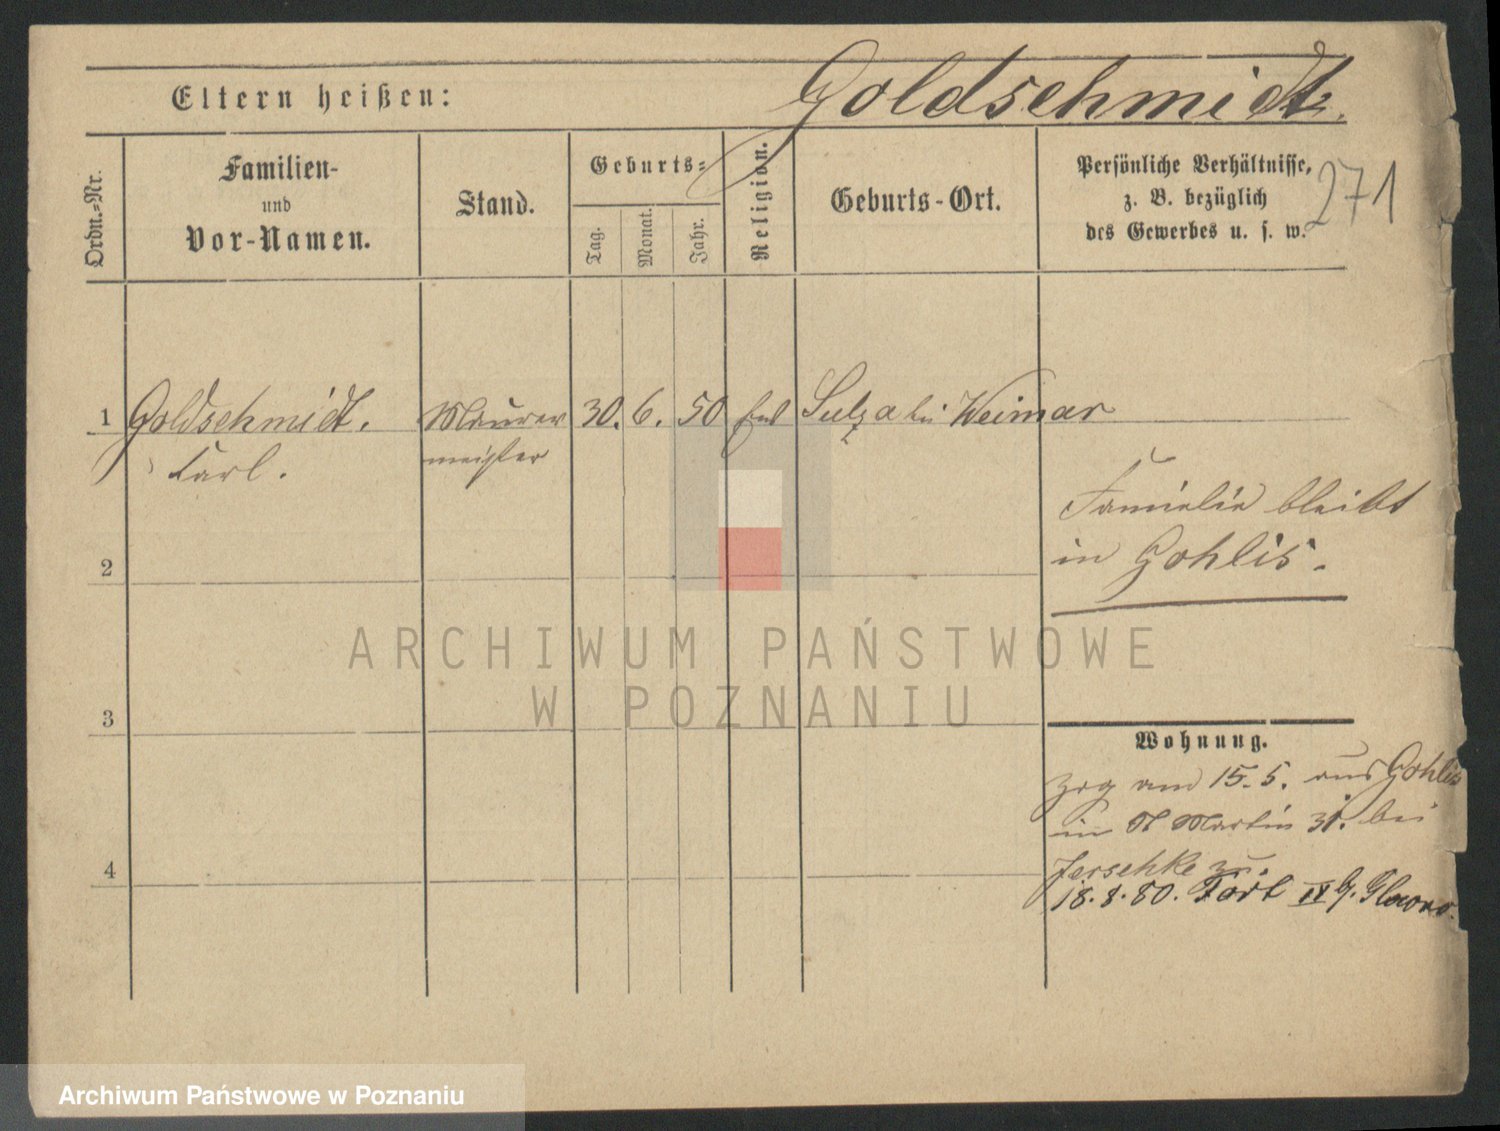 Goldschmidt.
Eltern heißen:
271
Ordn.-Nr.
Familien-
und
Vor-Namen.
Stand.
Geburts-
Tag.
Monat.
Jahr.
Religion.
Geburts-Ort.
Persönliche Verhältnisse,
z. B. bezüglich
des Gewerbes u. s. w.
1 Goldschmidt. Maurer 30. 6. 50 Sulza bei Weimar
Carl. meister
Familie bleibt
in Gohlis.
2
3
Wohnung.
zog am 15. 5. aus Gohlis
in St Martin 31. bei
Jerschke zu.
4
18. 8. 80. Fort IX G. Glowno.
ARCHIWUM PAŃSTWOWE
W POZNANIU
Archiwum Państwowe w Poznaniu